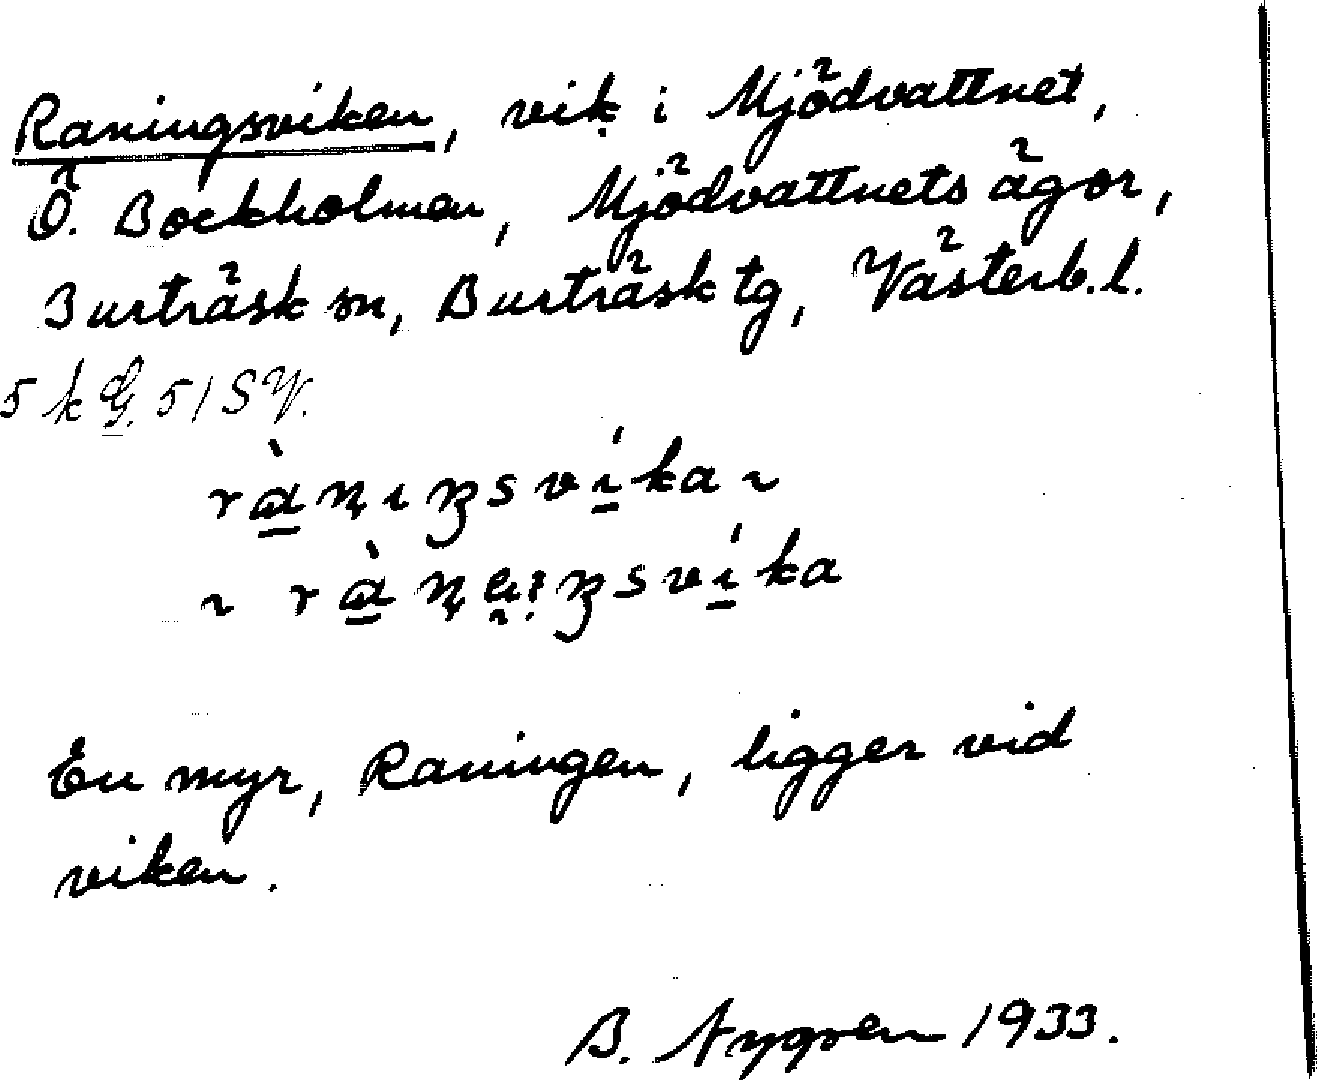 Raningsviken, vik i Mjödvattnet,
Ö. Bockholmen, Mjödvattnets ägor,
Burträsk sn, Burträsk tg, Västerb.l.
5 k G. 51 SV.
En myr, Raningen, ligger vid
viken.
B. Nygren 1933.